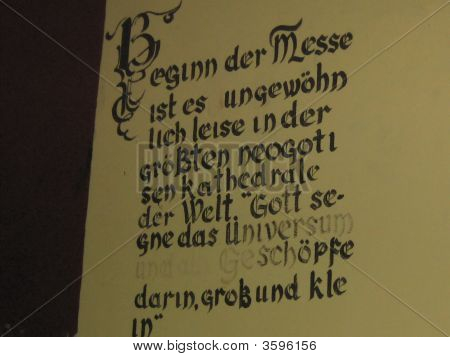 Beginn der Messe
ist es ungewöhn
lich leise in der
größten neogoti
sen kathedrale
der Welt. "Gott se-
gne das Universum
und alle Geschöpfe
darin, groß und kle
in"
Bigstock · 3596156